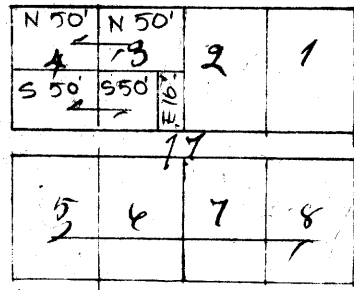 N 50' N 50'
4 3 2 1
S 50' S50' E 16'
17
5 6 7 8